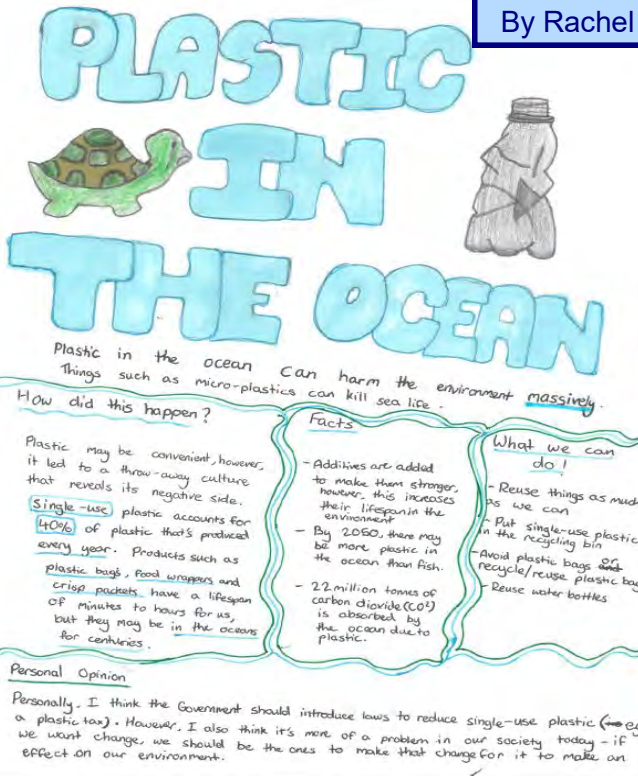 By Rachel
PLASTIC
IN
THE OCEAN
Plastic in the ocean can harm the environment massively.
Things such as micro-plastics can kill sea life.
How did this happen?
Plastic may be convenient, however,
it led to a throw-away culture
that reveals its negative side.
Single-use plastic accounts for
40% of plastic that's produced
every year. Products such as
plastic bags, food wrappers and
crisp packets have a lifespan
of minutes to hours for us,
but they may be in the oceans
for centuries.
Facts
- Additives are added
to make them stronger,
however, this increases
their lifespan in the
environment
- By 2050, there may
be more plastic in
the ocean than fish.
- 22 million tonnes of
carbon dioxide (CO²)
is absorbed by
the ocean due to
plastic.
What we can
do!
- Reuse things as much
as we can
- Put single-use plastic
in the recycling bin
- Avoid plastic bags or
recycle/reuse plastic bag
- Reuse water bottles
Personal Opinion
Personally, I think the Government should introduce laws to reduce single-use plastic (eg
a plastic tax). However, I also think it's more of a problem in our society today - if
we want change, we should be the ones to make that change for it to make an
effect on our environment.